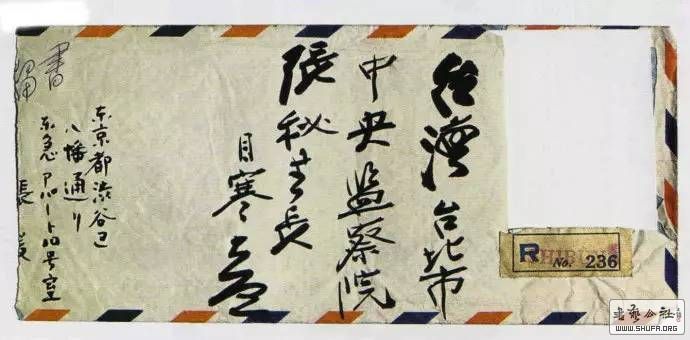 台灣台北市
中央監察院
張秘書長
目寒
東京都渋谷区
八幡通り
東急アパート
号室
張爰
書留
R
No. 236
书艺公社
WWW.SHUFA.ORG